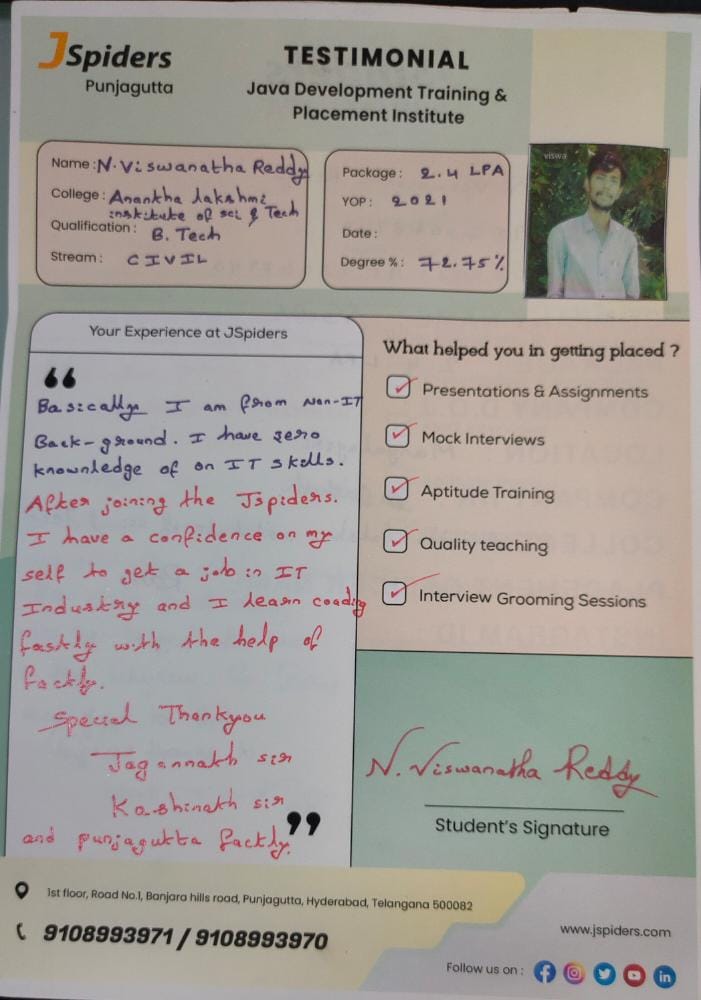 JSpiders
Punjagutta
TESTIMONIAL
Java Development Training &
Placement Institute
Name : N. Viswanatha Reddy
College : Anantha lakshmi
institute of sci & Tech
Qualification : B. Tech
Stream : CIVIL
Package : 2.4 LPA
YOP : 2021
Date :
Degree % : 72.75%
viswa
Your Experience at JSpiders
“
Basically I am from Non-IT
Back-ground. I have zero
knowledge of on IT skills.
After joining the Jspiders.
I have a confidence on my
self to get a job in IT
Industry and I learn coading
fastly with the help of
factly.
Special Thankyou
Jagannath sir
Kashinath sir
and punjagutta factly.
”
What helped you in getting placed ?
Presentations & Assignments
Mock Interviews
Aptitude Training
Quality teaching
Interview Grooming Sessions
N. Viswanatha Reddy
Student's Signature
1st floor, Road No.1, Banjara hills road, Punjagutta, Hyderabad, Telangana 500082
9108993971 / 9108993970
www.jspiders.com
Follow us on :